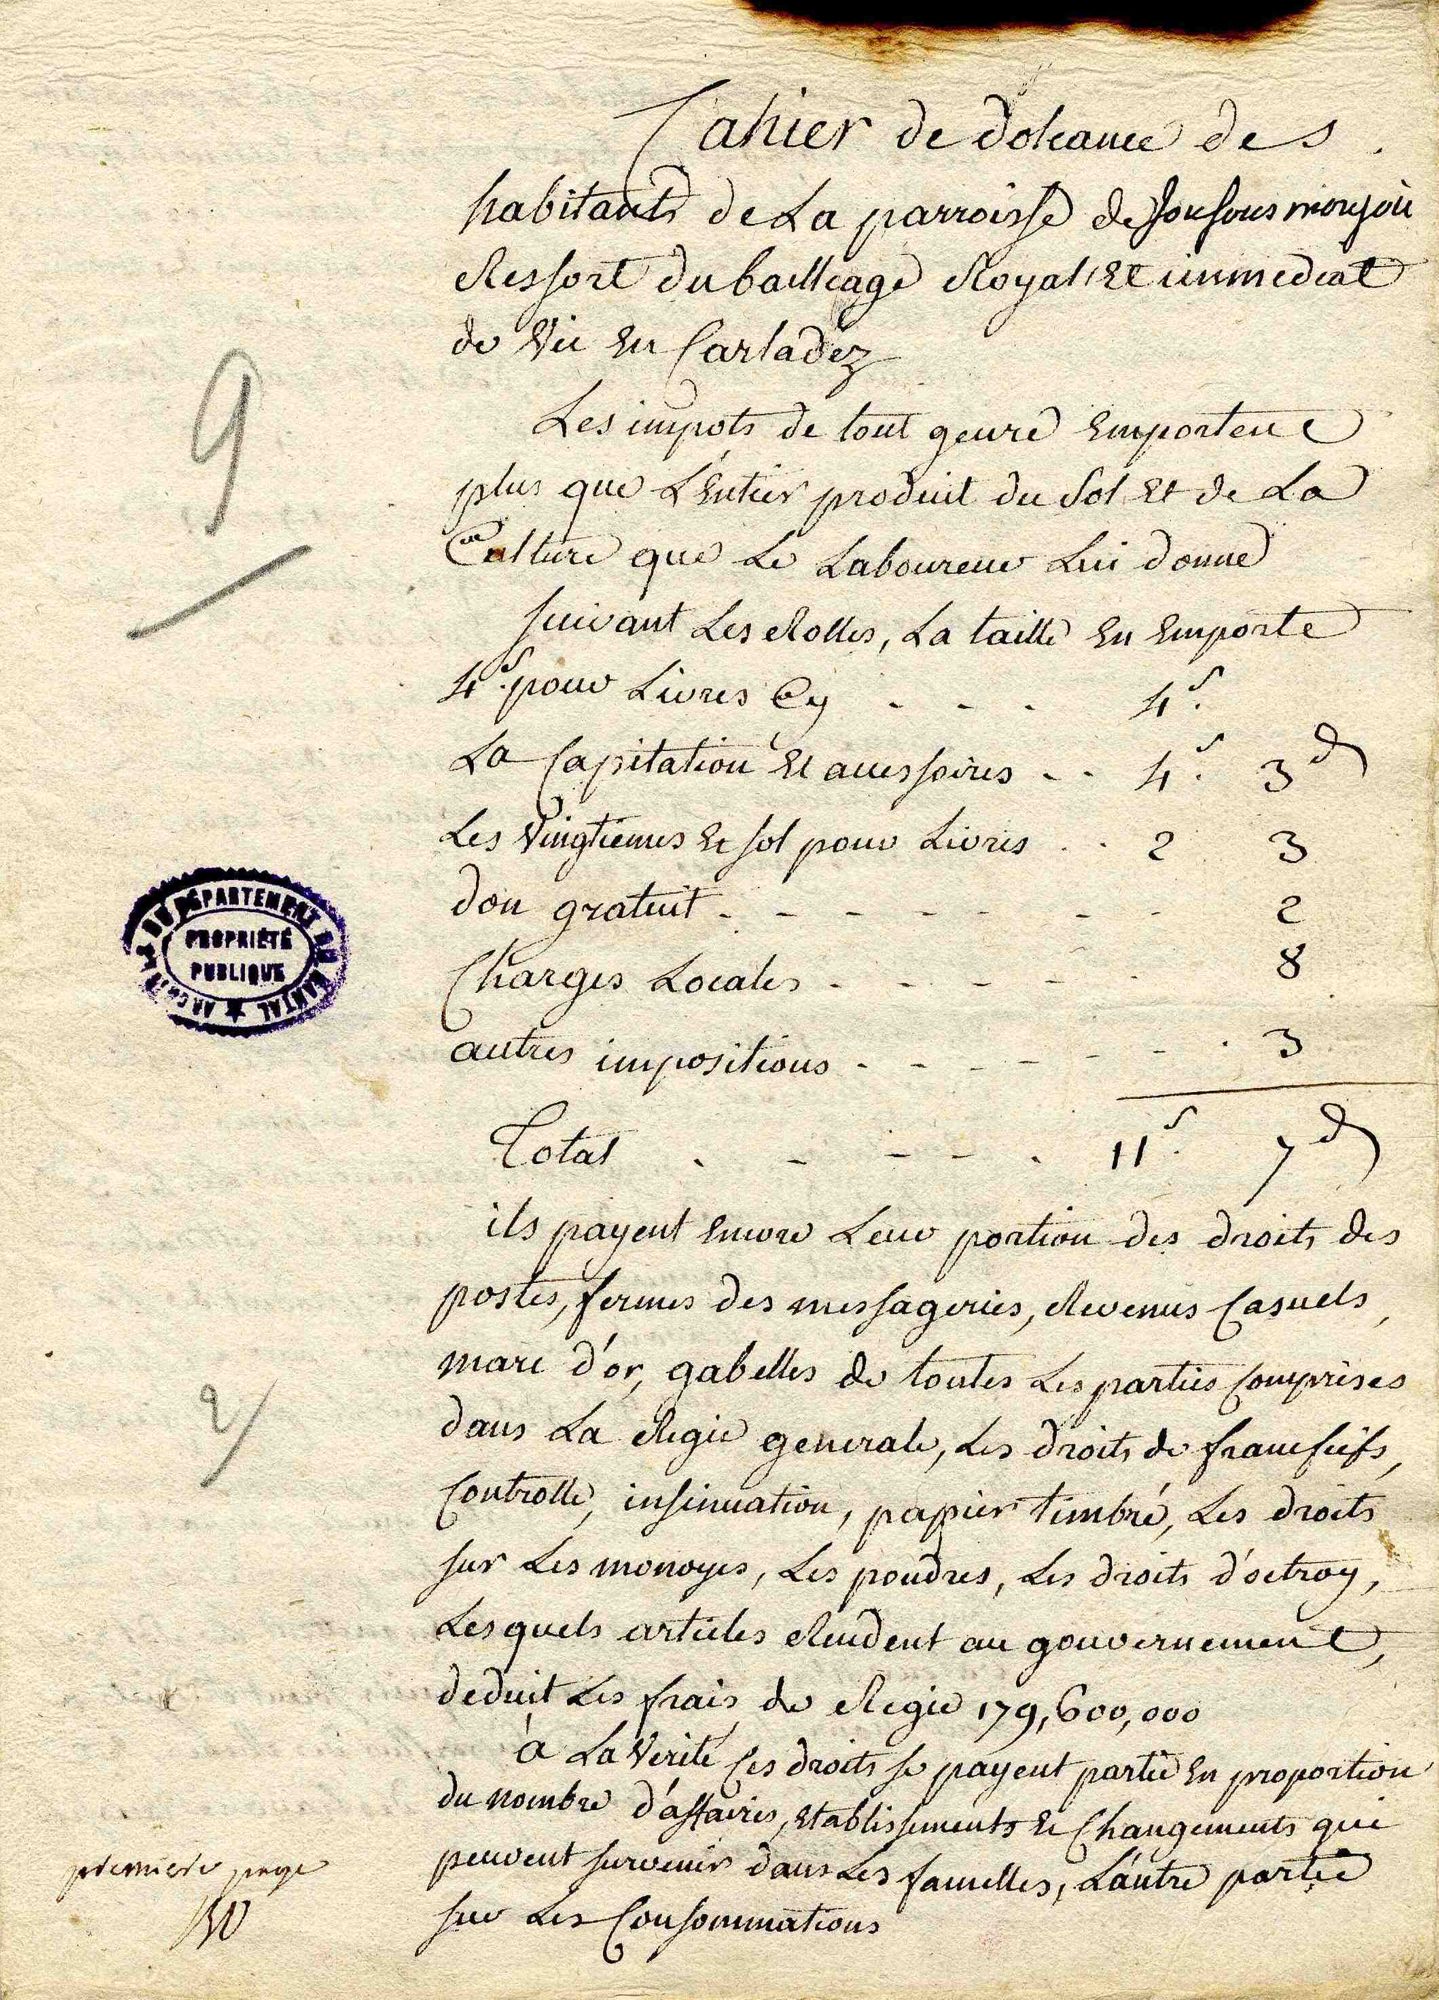 Cahier de doleance des
habitants de La parroisse de Jousousmonjou
Ressort du bailleage Royal Et immediat
de Vic En Carladez
Les impots de tout genre Emportent
plus que L'Entier produit du Sol Et de La
Culture que Le Laboureur Lui donne
suivant Les Rolles, La taille En Emporte
4s. pour Livres Cy - - - 4s.
La Capitation Et accessoires - - 4s. 3d
Les Vingtiemes Et sol pour Livres . . 2 3
don gratuit - - - - - - - 2
Charges Locales - - - - - 8
autres impositions - - - - - - 3
Total . - - - . 11s. 7d
ils payent Encore Leur portion des droits des
postes, fermes des messageries, Revenus Casuels,
marc d'or, gabelles de toutes Les parties Comprises
dans La Regie generale, Les droits de francfiefs,
Controlle, insinuation, papier timbré, Les droits
sur Les monoyes, Les poudres, Les droits d'octroy,
Lesquels articles Rendent au gouvernement,
deduit Les frais de Regie 179,600,000
à La Verité Ces droits se payent partie En proportion
du nombre d'affaires, Etablissements Et Changements qui
peuvent survenir dans Les familles, L'autre partie
sur Les Consommations
9
ARCHIVES DU DÉPARTEMENT DU CANTAL
PROPRIÉTÉ
PUBLIQUE
2/
premiere page